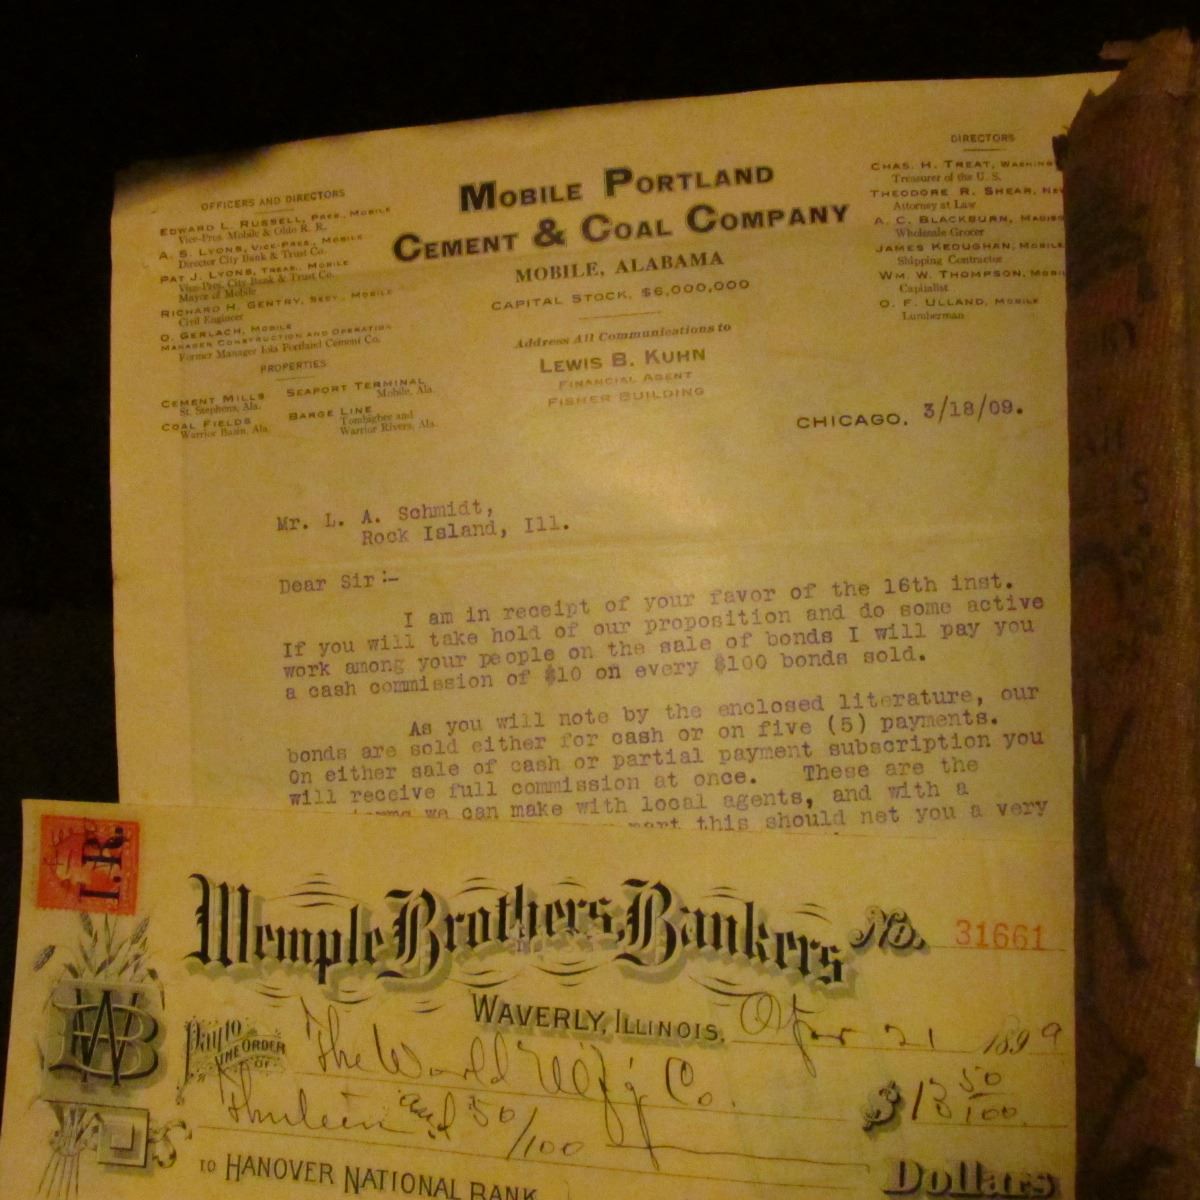 OFFICERS AND DIRECTORS
EDWARD L. RUSSELL, PRES., MOBILE
Vice-Pres. Mobile & Ohio R. R.
A. S. LYONS, VICE-PRES., MOBILE
Director City Bank & Trust Co.
PAT J. LYONS, TREAS., MOBILE
Vice-Pres. City Bank & Trust Co.
Mayor of Mobile
RICHARD H. GENTRY, SECY., MOBILE
Civil Engineer
O. GERLACH, MOBILE
MANAGER CONSTRUCTION AND OPERATION
Former Manager Iola Portland Cement Co.
PROPERTIES
CEMENT MILLS
St. Stephens, Ala.
COAL FIELDS
Warrior Basin, Ala.
SEAPORT TERMINAL
Mobile, Ala.
BARGE LINE
Tombigbee and
Warrior Rivers, Ala.
MOBILE PORTLAND
CEMENT & COAL COMPANY
MOBILE, ALABAMA
CAPITAL STOCK, $6,000,000
Address All Communications to
LEWIS B. KUHN
FINANCIAL AGENT
FISHER BUILDING
DIRECTORS
CHAS. H. TREAT, WASHING
Treasurer of the U. S.
THEODORE R. SHEAR, NEW
Attorney at Law
A. C. BLACKBURN, MADISO
Wholesale Grocer
JAMES KEOUGHAN, MOBILE
Shipping Contractor
WM. W. THOMPSON, MOBIL
Capitalist
O. F. ULLAND, MOBILE
Lumberman
CHICAGO, 3/18/09.
Mr. L. A. Schmidt,
Rock Island, Ill.
Dear Sir:-
I am in receipt of your favor of the 16th inst.
If you will take hold of our proposition and do some active
work among your people on the sale of bonds I will pay you
a cash commission of $10 on every $100 bonds sold.
As you will note by the enclosed literature, our
bonds are sold either for cash or on five (5) payments.
On either sale of cash or partial payment subscription you
will receive full commission at once. These are the
we can make with local agents, and with a
part this should net you a very
I.R.
Wemple Brothers, Bankers No. 31661
WAVERLY, ILLINOIS. Apr 21 1899
WB
Pay to THE ORDER OF The World M'f'g Co. $13 50/100
Thirteen and 50/100 Dollars
TO HANOVER NATIONAL BANK